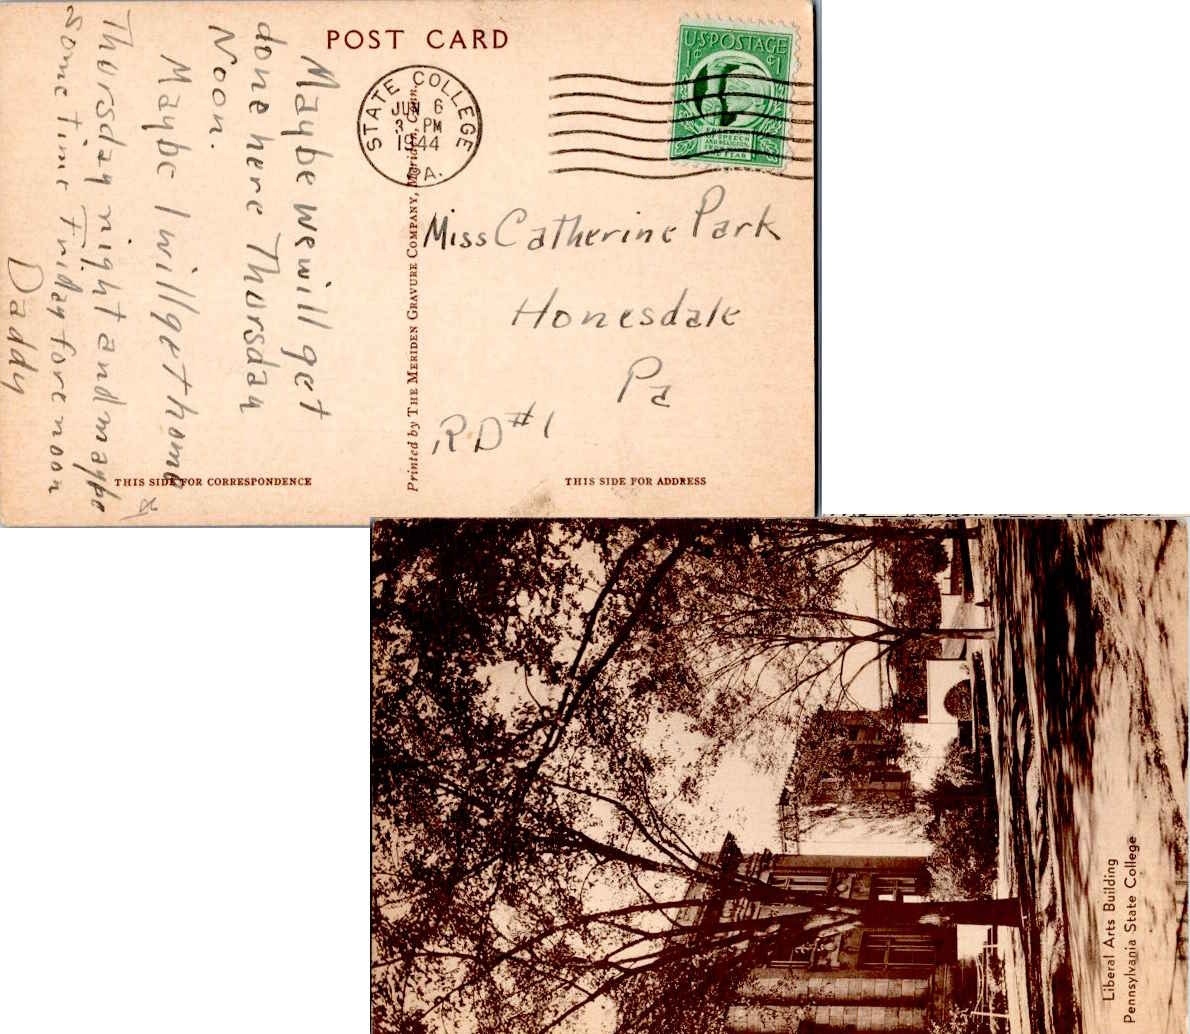 POST CARD
STATE COLLEGE
JUN 6
3 PM
1944
PA.
U.S. POSTAGE
1¢ ¢1
FREEDOM
OF SPEECH
AND RELIGION
FROM WANT
AND FEAR
Maybe we will get
done here Thorsday
Noon.
Maybe I will get home
Thorsday night and maybe
some time Friday forenoon
Daddy
Printed by THE MERIDEN GRAVURE COMPANY, Meriden, Conn.
Miss Catherine Park
Honesdale
Pa
RD #1
THIS SIDE FOR CORRESPONDENCE
THIS SIDE FOR ADDRESS
Liberal Arts Building
Pennsylvania State College